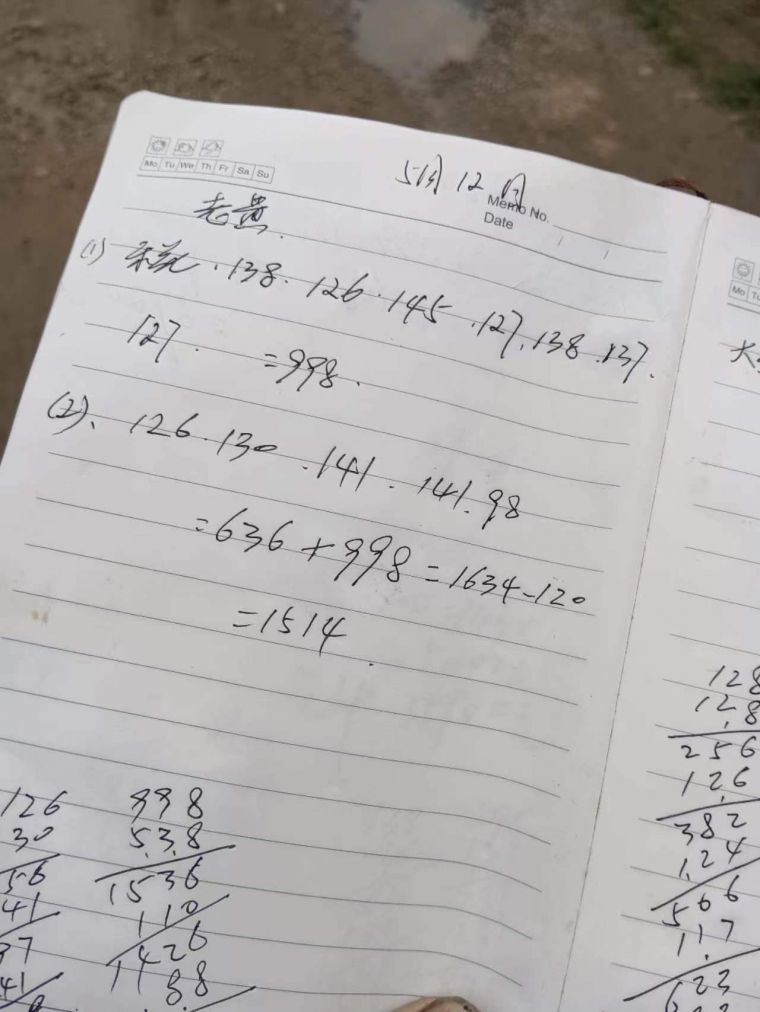 Mo Tu We Th Fr Sa Su
5月12日
Memo No.
Date
老黄.
(1) 138. 126. 145. 127. 138. 137.
127. =998.
(2)、126. 130. 141. 141. 98
=636+998=1634-120
=1514.
126
30
56
41
37
41
998
538
1536
110
1426
88
Mo Tu
大
128
128
256
126
382
124
506
117
623